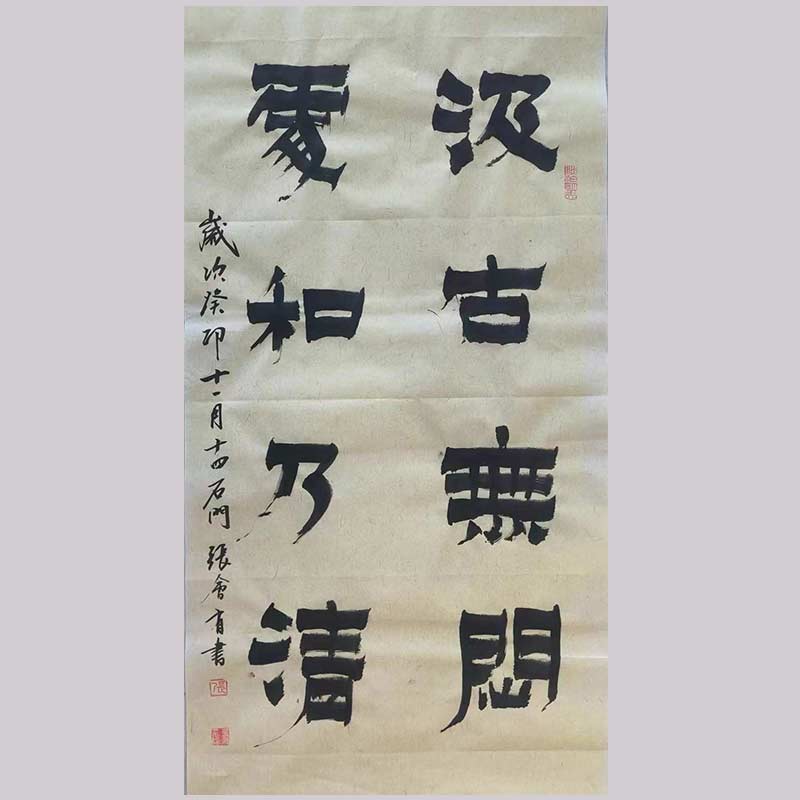 汲古無悶
處和乃清
歲次癸卯十一月十四石門 張會書